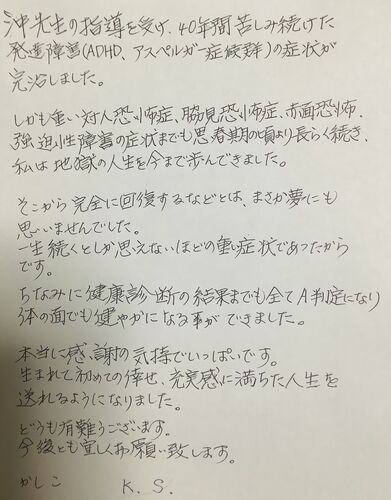 沖先生の指導を受け、40年間苦しみ続けた
発達障害(ADHD、アスペルガー症候群)の症状が
完治しました。
しかも重い対人恐怖症、脇見恐怖症、赤面恐怖、
強迫性障害の症状までも思春期の頃より長らく続き、
私は地獄の人生を今まで歩んできました。
そこから完全に回復するなどとは、まさか夢にも
思いませんでした。
一生続くとしか思えないほどの重い症状であったから
です。
ちなみに健康診断の結果までも全てA判定になり
体の面でも健やかになる事ができました。
本当に感謝の気持でいっぱいです。
生まれて初めての倖せ、充実感に満ちた人生を
送れるようになりました。
どうも有難うございます。
今後とも宜しくお願い致します。
かしこ K.S.